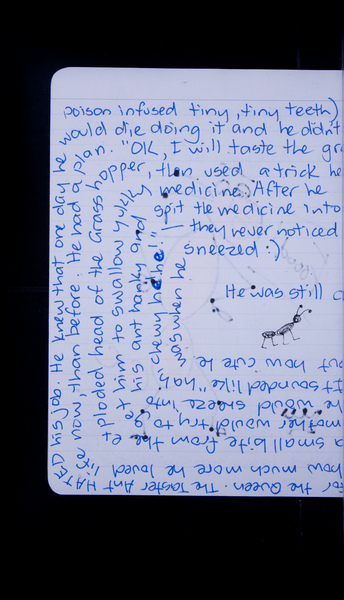 for the Queen. The Taster Ant HATED his job. He knew that one day he would die doing it and he didn't
poison infused tiny, tiny teeth)
how much more he loved life now, than before. He had a plan. "OK, I will taste the gr
a small bite from the exploded head of the Grasshopper, then used a trick he
mother would try to get him to swallow yukky medicine. After he
he would sneeze into his ant hanky and spit the medicine into
It sounded like "hah chewy hehe!" — they never noticed
but how cute he was when he sneezed :)
He was still